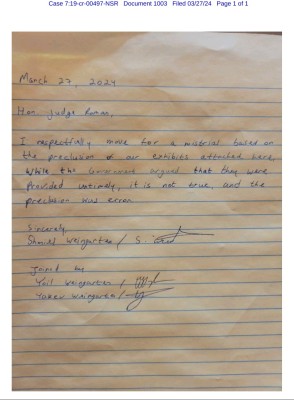 Case 7:19-cr-00497-NSR Document 1003 Filed 03/27/24 Page 1 of 1
March 27, 2024
Hon. Judge Roman,
I respectfully move for a mistrial based on
the preclusion of our exhibits attached here.
While the Government argued that they were
provided untimely, it is not true, and the
preclusion was error.
Sincerely,
Shmiel Weingarten / S.
Joined by
Yoil Weingarten /
Yakev Weingarten /